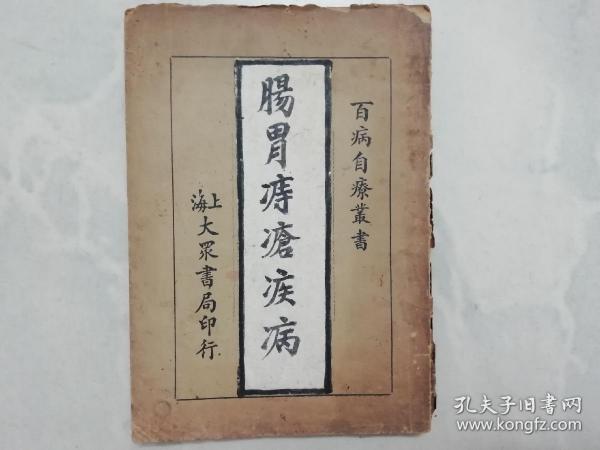 百病自療叢書
腸胃痔瘡疾病
上海大眾書局印行
孔夫子旧书网
www.kongfz.com